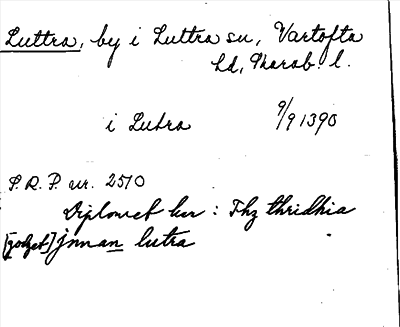 Luttra, by i Luttra sn, Vartofta
hd, Skarab. l.
i Lutra 9/9 1390
S.R.P. nr. 2510
Diplomet har : Thz thridhia
[godzet] jnnan lutra